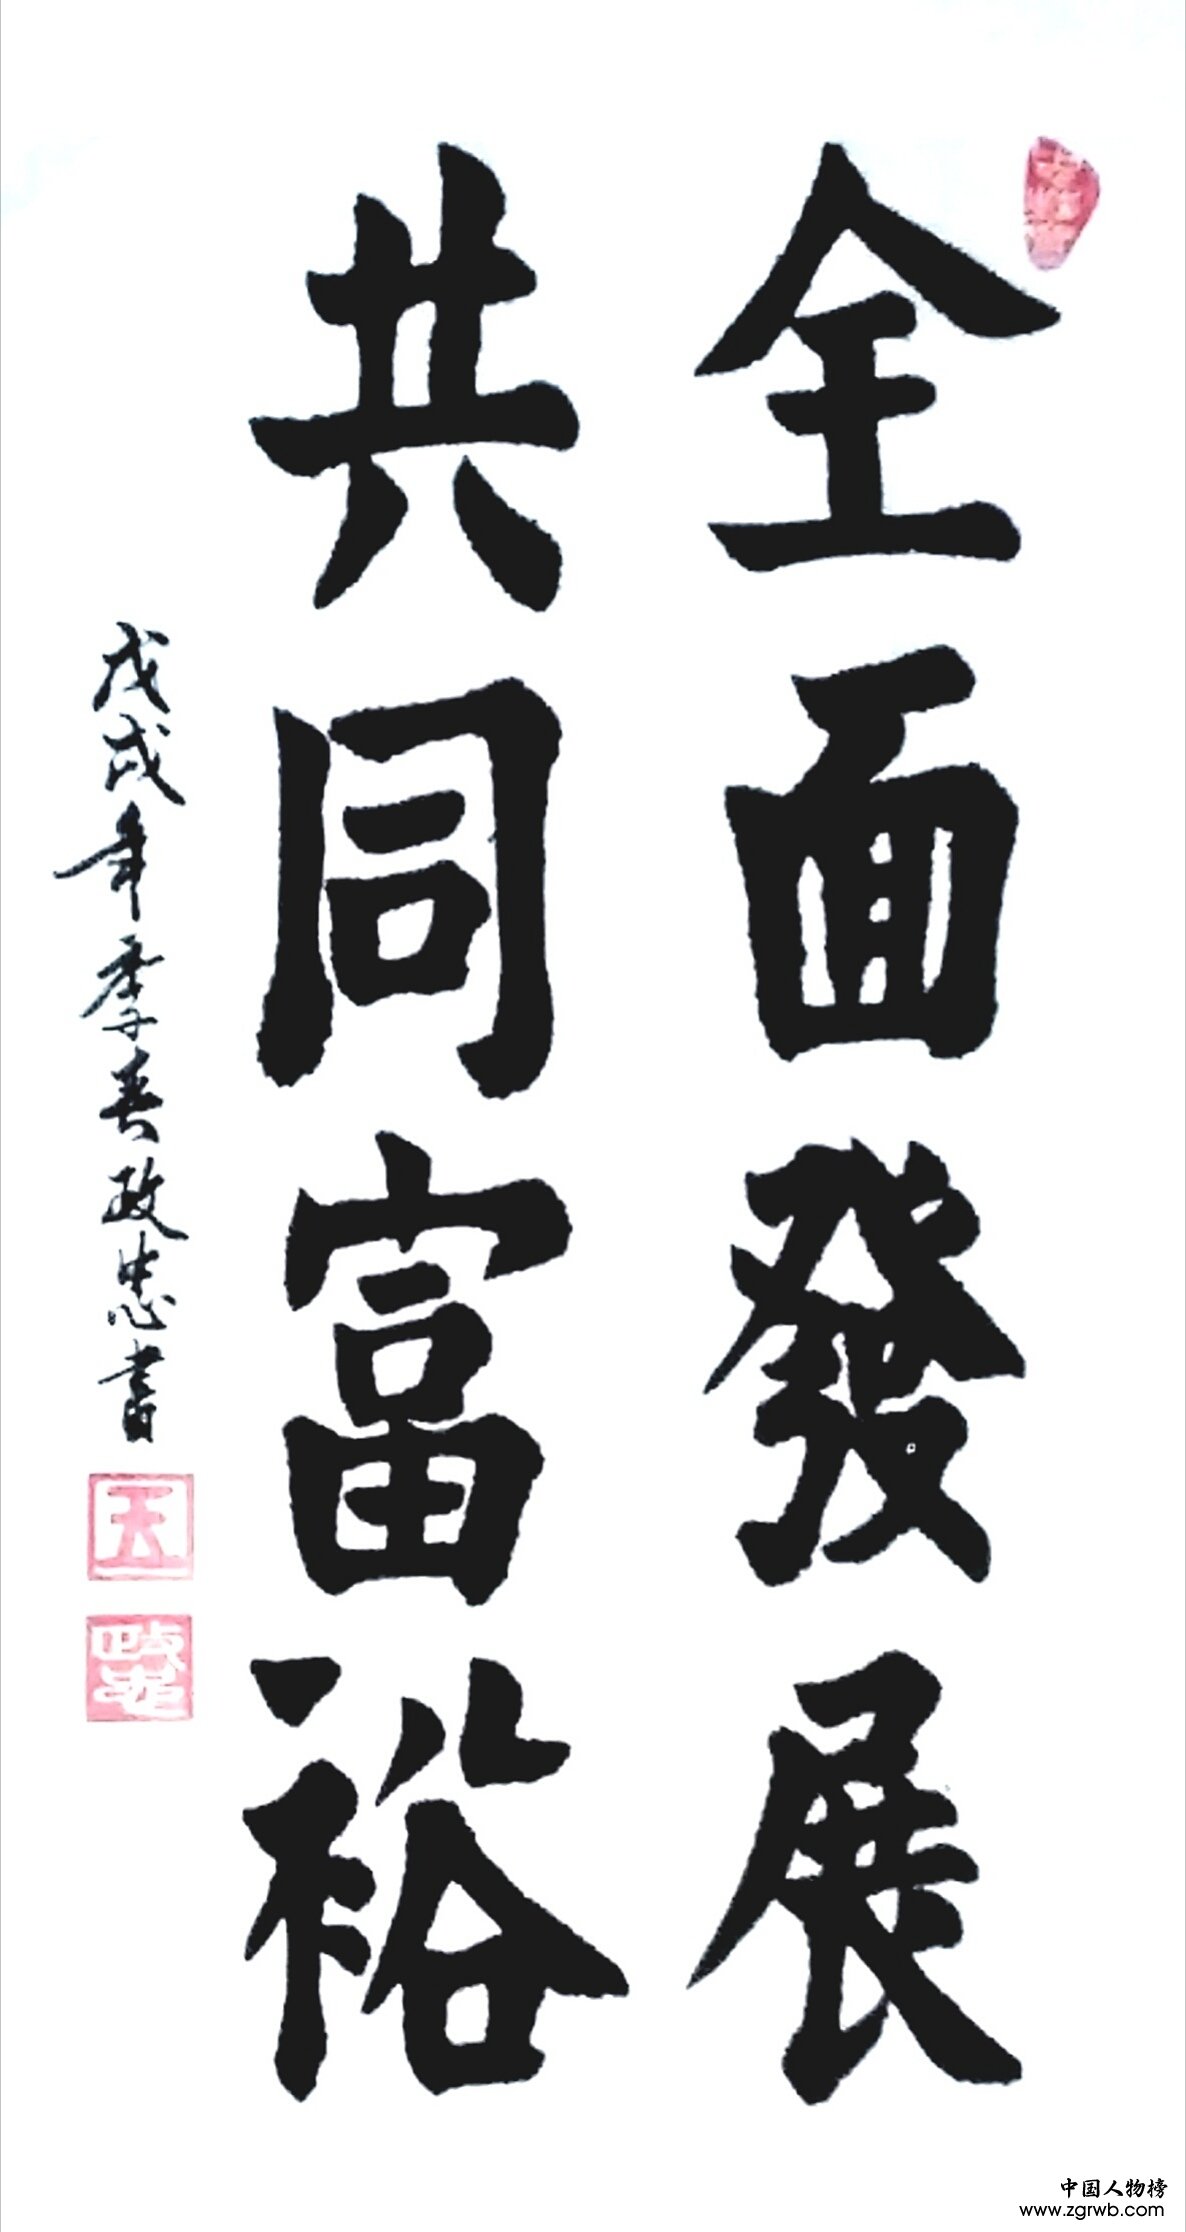 全面發展
共同富裕
戊戌年季春政忠書
政忠
中国人物榜
www.zgrwb.com